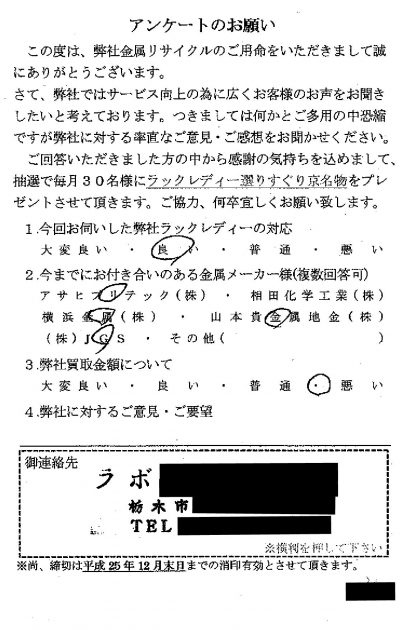 アンケートのお願い
この度は、弊社金属リサイクルのご用命をいただきまして誠
にありがとうございます。
さて、弊社ではサービス向上の為に広くお客様のお声をお聞き
したいと考えております。つきましては何かとご多用の中恐縮
ですが弊社に対する率直なご意見・ご感想をお聞かせください。
ご回答いただきました方の中から感謝の気持ちを込めまして、
抽選で毎月30名様にラックレディー選りすぐり京名物をプレ
ゼントさせて頂きます。ご協力、何卒宜しくお願い致します。
1.今回お伺いした弊社ラックレディーの対応
大変良い ・ 良い ・ 普通 ・ 悪い
2.今までにお付き合いのある金属メーカー様(複数回答可)
アサヒプリテック(株) ・ 相田化学工業(株)
横浜金属(株) ・ 山本貴金属地金(株)
(株)JGS ・ その他( )
3.弊社買取金額について
大変良い ・ 良い ・ 普通 ・ 悪い
4.弊社に対するご意見・ご要望
御連絡先
ラボ
栃木市
TEL
※横判を押して下さい
※尚、締切は平成25年12月末日までの消印有効とさせて頂きます。